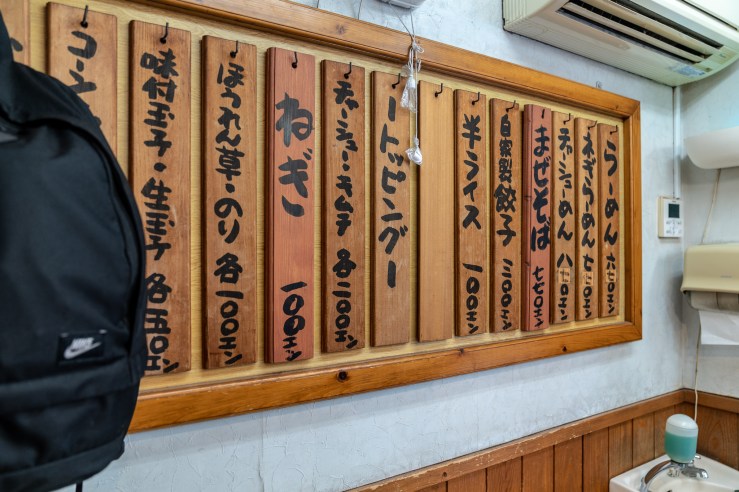 らーめん 六七〇エン
ねぎらーめん 七七〇エン
チャーシューめん 八七〇エン
まぜそば 七七〇エン
自家製餃子 三〇〇エン
半ライス 一〇〇エン
ートッピングー
チャーシュー・キムチ 各二〇〇エン
ねぎ 一〇〇エン
ほうれん草・のり 各一〇〇エン
味付玉子・生玉子 各五〇エン
コーン